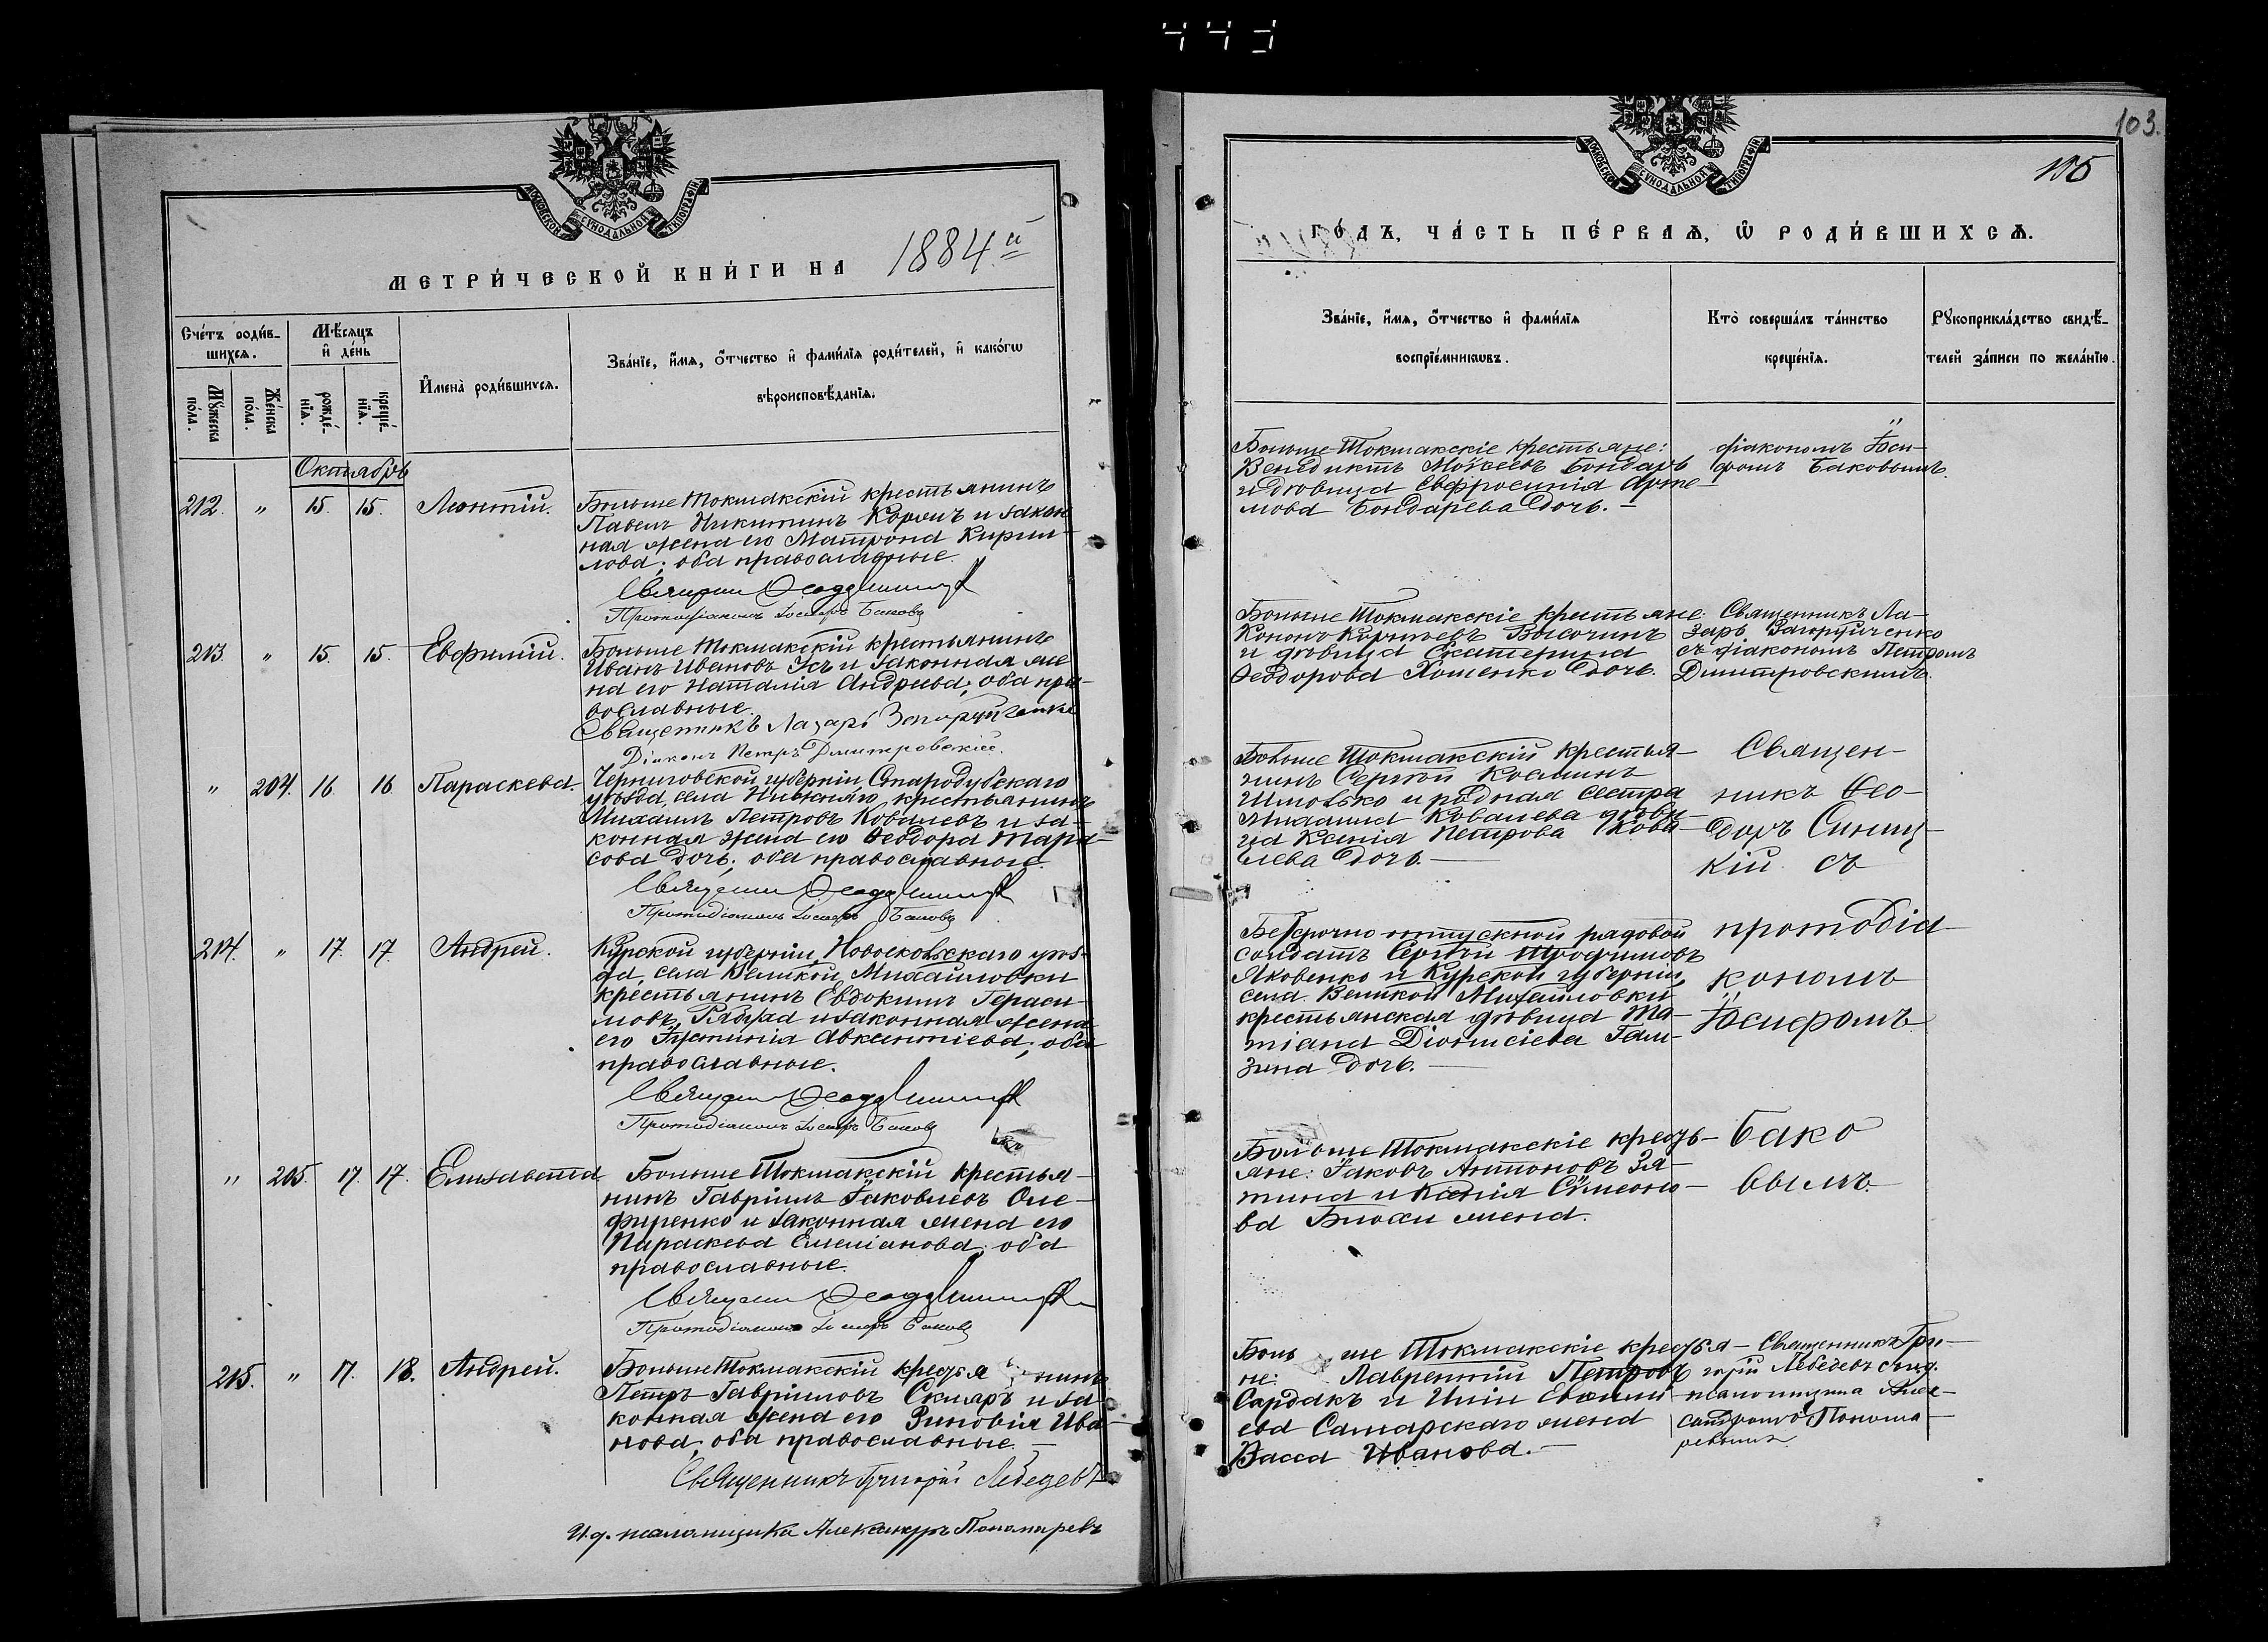 443
МОСКОВСКОЙ СУНОДАЛЬНОЙ ТИПОГРАФІИ
МЕТРИ́ЧЕСКОЙ КНИ́ГИ НА 1884й
Сче́тъ роди́в-
шихсѧ.
Мѣ́сѧцъ
и҆ де́нь
Му́жеска
по́ла.
Же́нска
по́ла.
рожде́-
нїѧ.
креще́-
нїѧ.
И҆мена̀ роди́вшихсѧ.
Зва́нїе, и҆́мѧ, ѻ҆́тчество и҆ фами́лїѧ роди́телей, и҆ како́гѡ
вѣроисповѣ́данїѧ.
Октябрь
212. " 15. 15. Леонтій.
Больше Токмакскій крестьянинъ
Павелъ Никитинъ и закон
ная жена его Матрона Кирил-
лова; оба православные.
Протодіаконъ Іосифъ Баковъ
213. " 15. 15. Евфимій.
Больше Токмакскій крестьянинъ
Иванъ Ивановъ Усъ и законная же
на его Наталія Андреева; оба пра-
вославные.
Священникъ Лазарь Загоруйченко
Діаконъ Петръ Дмитровскій.
" 204. 16. 16 Параскева.
Черниговской губерніи, Стародубскаго
уѣзда, села крестьянинъ
Михаилъ Петровъ Ковалевъ и за-
конная жена его Ѳеодора Тара-
сова дочь; оба православные.
Протодіаконъ Іосифъ Баковъ
214. " 17. 17. Андрей.
Курской губерніи, Новоскольскаго уѣз-
да, села Великой Михайловки
крестьянинъ Евдокимъ Гераси-
мовъ и законная жена
его Іустинія Авксентіева; оба
православные.
Протодіаконъ Іосифъ Баковъ
" 205. 17. 17. Елизавета
Больше Токмакскій крестья-
нинъ Гавріилъ Іаковлевъ Оле-
фиренко и законная жена его
Параскева Емеліанова; оба
православные.
Протодіаконъ Іосифъ Баковъ
215. " 17. 18. Андрей.
Больше Токмакскій крестья нинъ
Петръ Гавріиловъ Скляръ и за-
конная жена его Зиновія Ива-
нова; оба православные. —
Священникъ Григорій Лебедевъ
И.д. псаломщика Александръ Пономаревъ
103.
105
МОСКОВСКОЙ СУНОДАЛЬНОЙ ТИПОГРАФІИ
ГО́ДЪ, ЧА́СТЬ ПЕ́РВАѦ, Ѡ҆ РОДИ́ВШИХСѦ.
Зва́нїе, и҆́мѧ, ѻ҆́тчество и҆ фами́лїѧ
воспрїе́мникѡвъ.
Кто̀ соверша́лъ та́инство
креще́нїѧ.
Рꙋкоприкла́дство свидѣ́-
телей за́писи по жела́нїю.
Больше-Токмакскіе крестьяне:
Венедиктъ Моѵсеевъ Бондарь
и дѣвица Евфросинія Арте-
мова Бондарева дочь. —
діакономъ Іоси-
фомъ Баковымъ.
Больше Токмакскіе крестьяне:
Кононъ Высочинъ
и дѣвица Екатерина
Ѳеодорова Хоменко дочь.
Священникъ Ла-
зарь Загоруйченко
съ діакономъ Петромъ
Дмитровскимъ.
Больше Токмакскій крестья-
нинъ Сергѣй Косминъ
и родная сестра
Михаила Ковалева дѣви-
ца Ксенія Петрова Кова-
лева дочь. —
Священ-
никъ Ѳео-
доръ Синиц-
кій съ
Безсрочно отпускной рядовой
солдатъ Сергѣй Трофимовъ
Яковенко и Курской губерніи,
села Великой Михайловки
крестьянская дѣвица Та-
тіана Діонисіева Гам-
зина дочь. —
протодіа-
кономъ
Іосифомъ
Больше Токмакскіе кресть-
яне: Іаковъ Антоновъ Зя-
тина и Ксенія Сѵмеоно-
ва Блохи жена.
Бако
вымъ.
Боль ше Токмакскіе крестья-
не: Лаврентій Петровъ
Сардакъ и
ева Самарскаго жена
Васса Иванова. —
Священникъ Гри-
горій Лебедевъ съ и.д.
псаломщика Алек-
сандромъ Понома-
ревымъ.